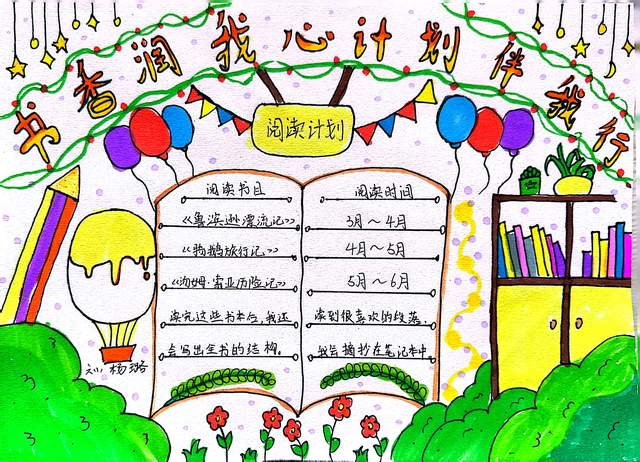 书香润我心计划伴我行
阅读计划
阅读书目
《鲁滨逊漂流记》
《骑鹅旅行记》
《汤姆·索亚历险记》
读完这些书本后，我还
会写出全书的结构。
阅读时间
3月～4月
4月～5月
5月～6月
读到很喜欢的段落，
我会摘抄在笔记本中。
刘杨璐